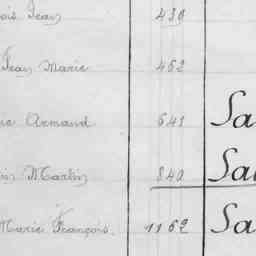 ois Jean 439
Jean Marie 462
ie Armand 641 Sa
is Martin 840 Sa
Marie François. 1162 Sa